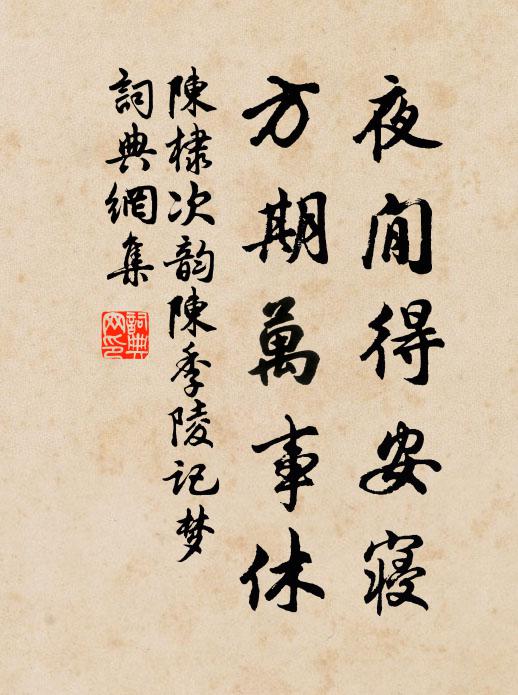 夜間得安寢
方期萬事休
陳棣次韵陳季陵記梦
詞典網集
詞典
网印